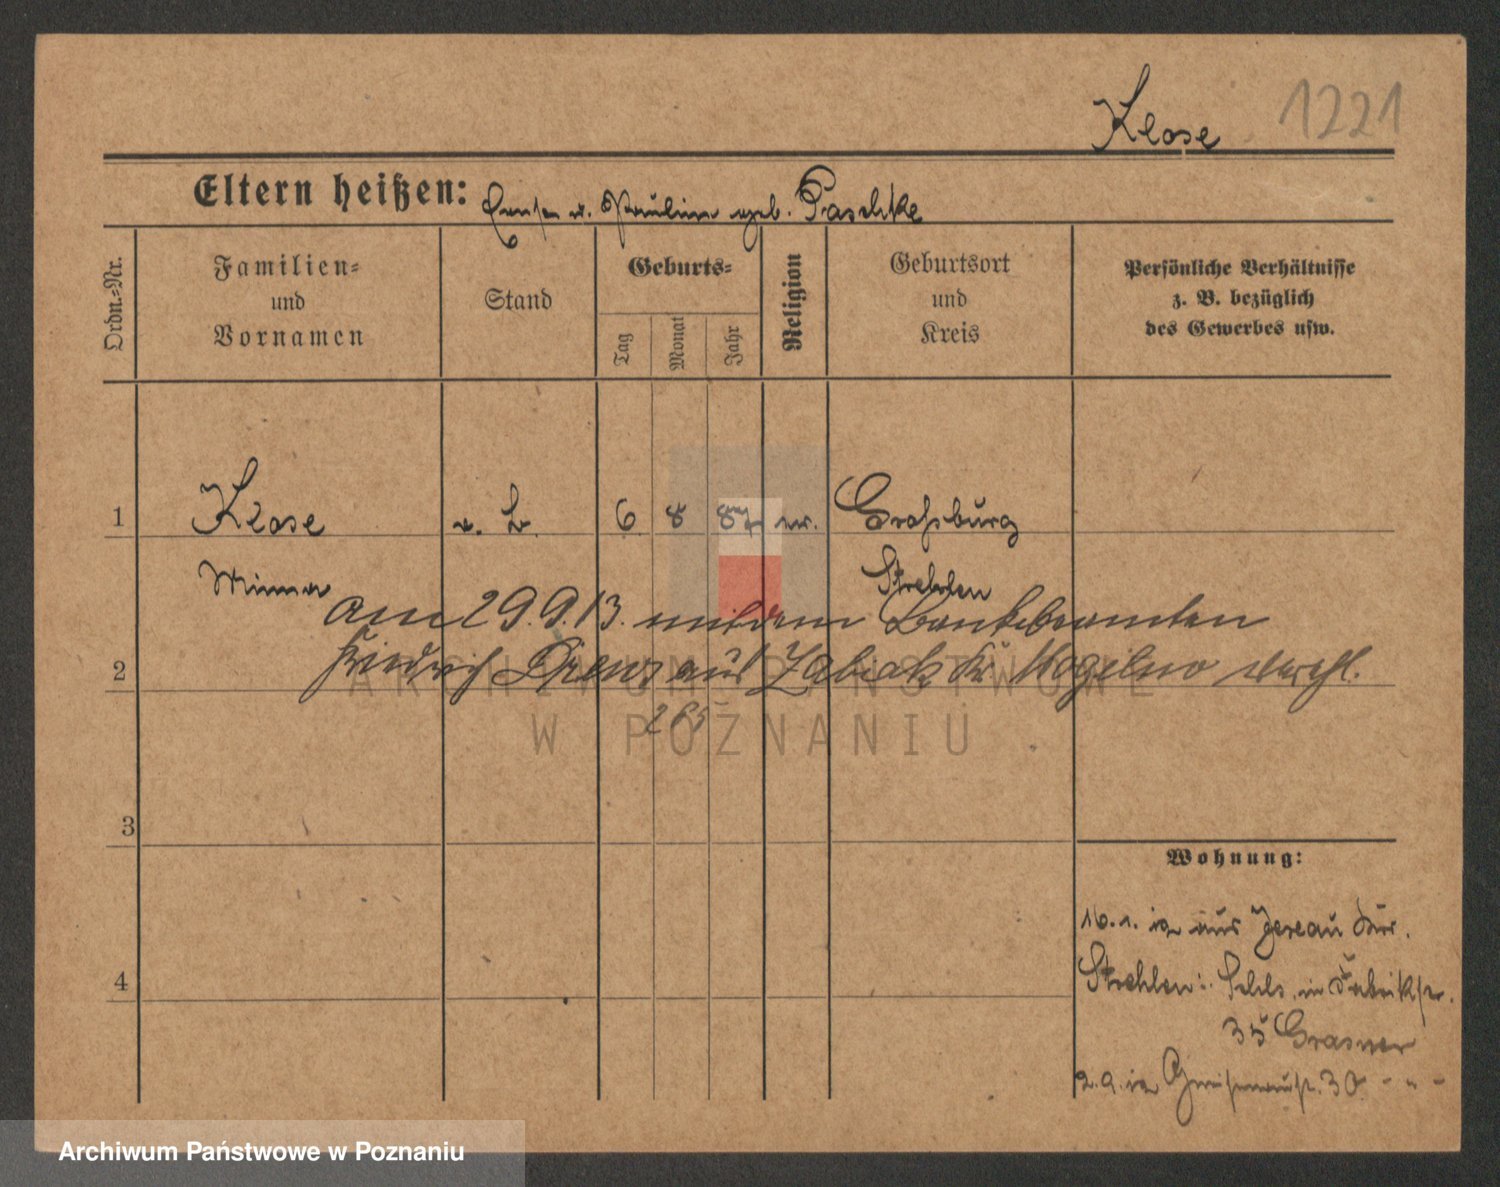 Klose 1221
Eltern heißen: Ernst u. Pauline geb. Paschke
Ordn.=Nr.
Familien=
und
Vornamen
Stand
Geburts=
Tag
Monat
Jahr
Religion
Geburtsort
und
Kreis
Persönliche Verhältnisse
z. B. bezüglich
des Gewerbes usw.
1 Klose 6 8 87 ev. Großburg
Minna Strehlen
am 29.9.13. mit dem Bankbeamten
2 Friedrich aus Kr. Mogilno verehl.
265
3
Wohnung:
16.1. aus
4 Strehlen in Fabrikstr.
35
2.9. Gneisenaustr. 30 - " -
ARCHIWUM PAŃSTWOWE
W POZNANIU
Archiwum Państwowe w Poznaniu